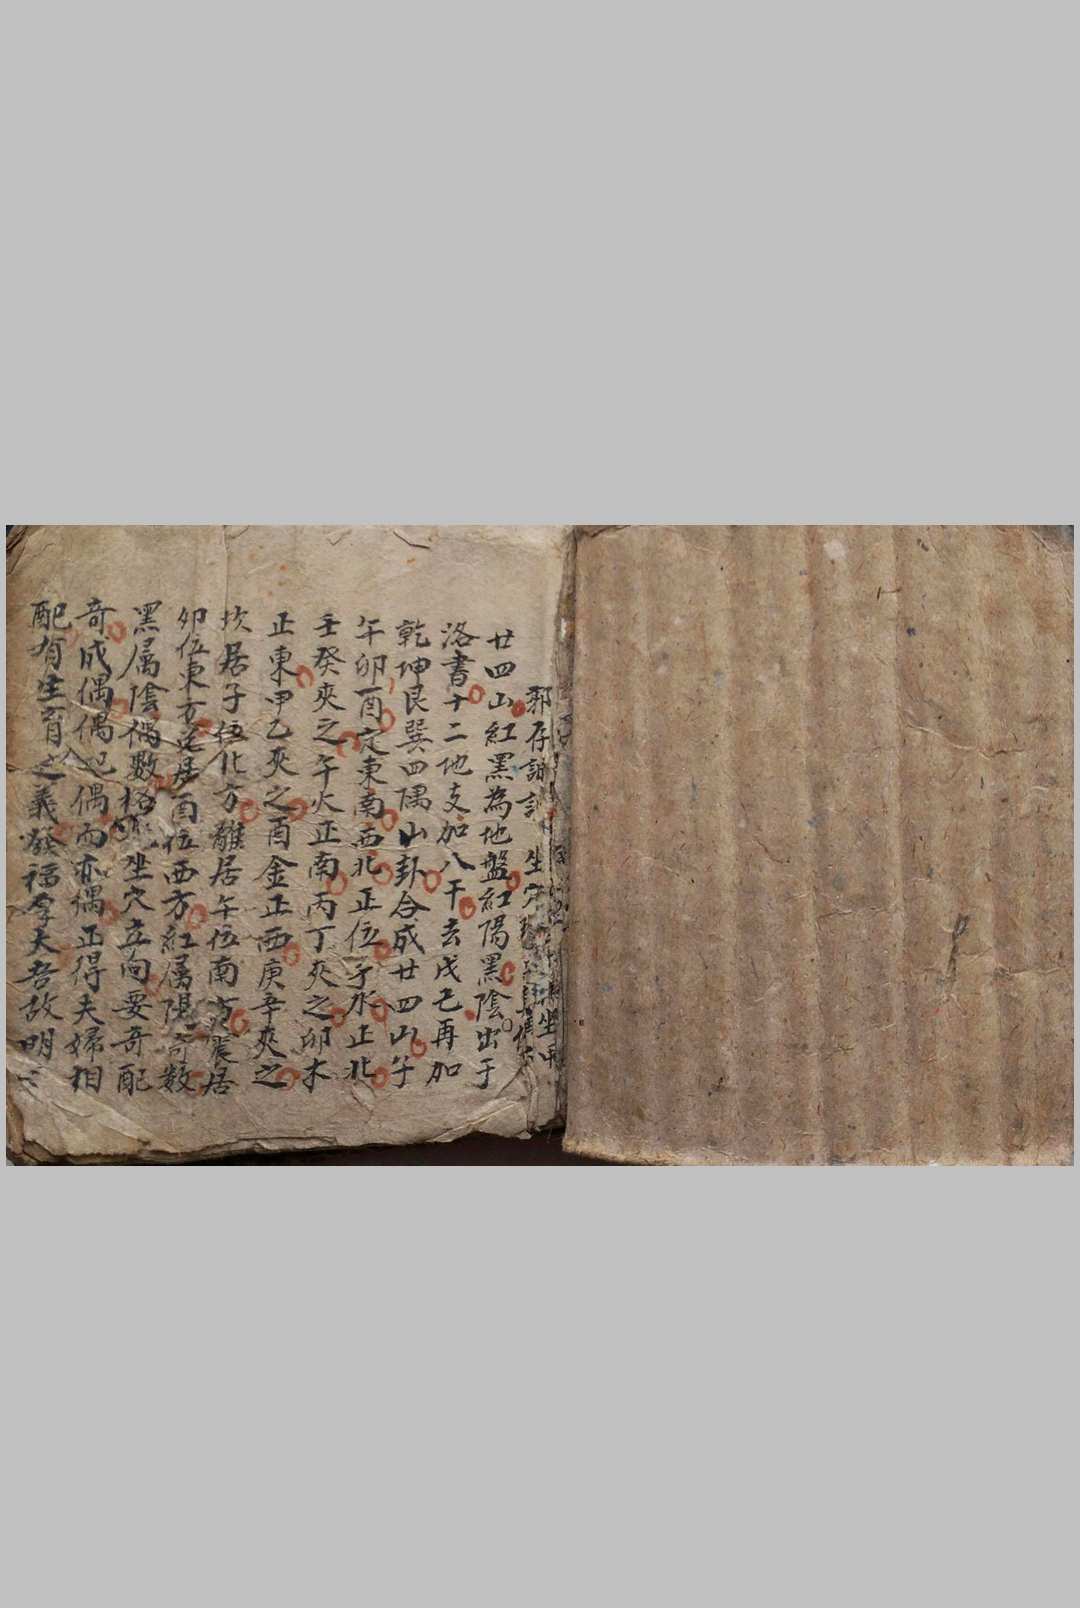 邪存訣
坐穴
廿四山紅黑為地盤紅陽黑陰出于
洛書十二地支加八干去戊己再加
乾坤艮巽四隅山卦合成廿四山子
午卯酉定東南西北正位子水正北
壬癸夾之午火正南丙丁夾之卯木
正東甲乙夾之酉金正西庚辛夾之
坎居子位北方離居午位南方震居
卯位東方兌居酉位西方紅屬陽奇数
黑属陰偶數坐穴立向要奇配
奇成偶偶配偶而亦偶正得夫婦相
配有生育之義發福大吾故明之